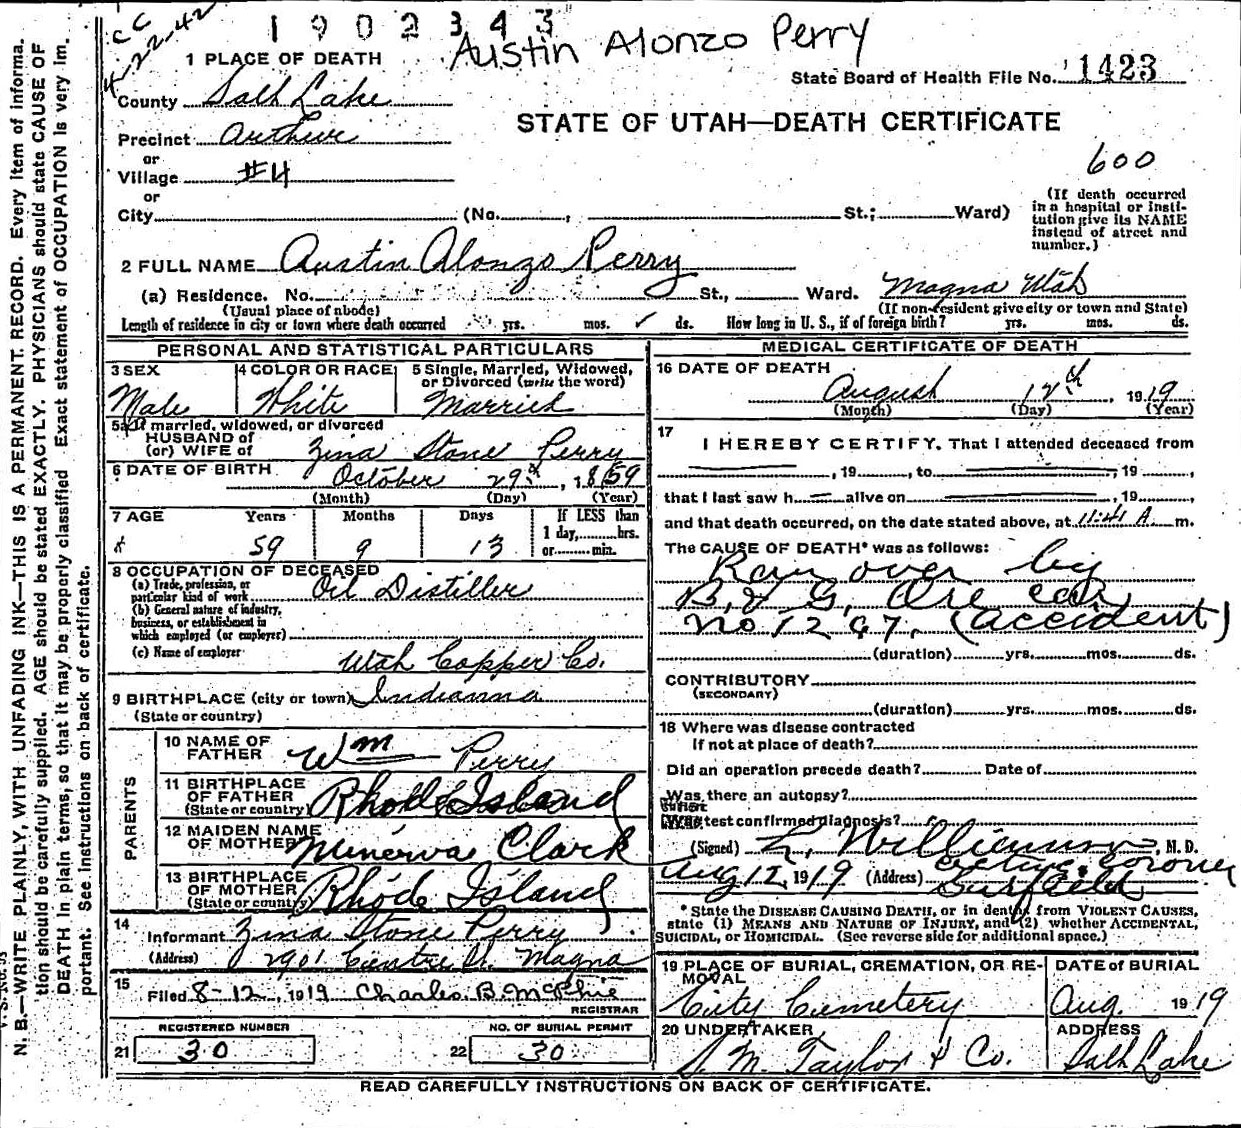 CC
4-22-42
1902343
Austin Alonzo Perry
1 PLACE OF DEATH
State Board of Health File No. 1423
County Salt Lake
STATE OF UTAH—DEATH CERTIFICATE
Precinct Arthur
or
Village #4
600
or
City (No. , St.; Ward)
(If death occurred in a hospital or institution give its NAME instead of street and number.)
2 FULL NAME Austin Alonzo Perry
(a) Residence. No. St., Ward. Magna Utah
(Usual place of abode) (If non-resident give city or town and State)
Length of residence in city or town where death occurred yrs. mos. ✓ ds. How long in U. S., if of foreign birth? yrs. mos. ds.
PERSONAL AND STATISTICAL PARTICULARS
3 SEX 4 COLOR OR RACE 5 Single, Married, Widowed, or Divorced (write the word)
Male White Married
5a If married, widowed, or divorced
HUSBAND of
(or) WIFE of Zina Stone Perry
6 DATE OF BIRTH October 29th, 1859
(Month) (Day) (Year)
7 AGE Years Months Days If LESS than
1 day, hrs.
59 9 13 or min.
8 OCCUPATION OF DECEASED
(a) Trade, profession, or
particular kind of work Oil Distiller
(b) General nature of industry,
business, or establishment in
which employed (or employer)
(c) Name of employer Utah Copper Co.
9 BIRTHPLACE (city or town) Indianna
(State or country)
PARENTS
10 NAME OF
FATHER Wm Perry
11 BIRTHPLACE
OF FATHER
(State or country) Rhode Island
12 MAIDEN NAME
OF MOTHER Minerva Clark
13 BIRTHPLACE
OF MOTHER
(State or country) Rhode Island
14
Informant Zina Stone Perry
(Address) 2901 Centre St. Magna
15
Filed 8-12, 1919 Charles B. McPhie
REGISTRAR
REGISTERED NUMBER NO. OF BURIAL PERMIT
21 30 22 30
MEDICAL CERTIFICATE OF DEATH
16 DATE OF DEATH
August 12th, 1919
(Month) (Day) (Year)
17
I HEREBY CERTIFY, That I attended deceased from
, 19 , to , 19 ,
that I last saw h alive on , 19 ,
and that death occurred, on the date stated above, at 11:41 A. m.
The CAUSE OF DEATH* was as follows:
Ran over by
B. & G. Ore car
No 1297. (accident)
(duration) yrs. mos. ds.
CONTRIBUTORY
(SECONDARY)
(duration) yrs. mos. ds.
18 Where was disease contracted
If not at place of death?
Did an operation precede death? Date of
Was there an autopsy?
What test confirmed diagnosis?
(Signed) L. , M. D.
Acting Coroner
Aug 12, 1919 (Address) Garfield
* State the DISEASE CAUSING DEATH, or in deaths from VIOLENT CAUSES,
state (1) MEANS AND NATURE OF INJURY, and (2) whether ACCIDENTAL,
SUICIDAL, or HOMICIDAL. (See reverse side for additional space.)
19 PLACE OF BURIAL, CREMATION, OR RE-
MOVAL DATE of BURIAL
City Cemetery Aug. 1919
20 UNDERTAKER ADDRESS
S. M. Taylor & Co. Salt Lake
READ CAREFULLY INSTRUCTIONS ON BACK OF CERTIFICATE.
V. S. No. 95
N. B.—WRITE PLAINLY, WITH UNFADING INK—THIS IS A PERMANENT RECORD. Every item of informa-
tion should be carefully supplied. AGE should be stated EXACTLY. PHYSICIANS should state CAUSE OF
DEATH in plain terms, so that it may be properly classified Exact statement of OCCUPATION is very im-
portant. See instructions on back of certificate.